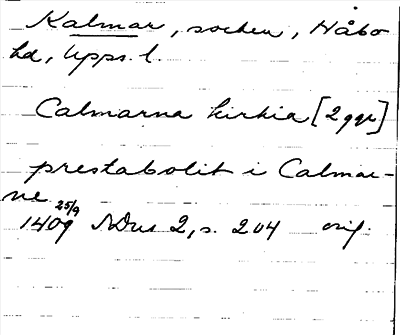 Kalmar, socken, Håbo
hd, Upps. l.
Calmarna kirkia [2 ggr]
prestabolit i Calmar-
ne
1409 25/9 SDns 2, s. 204 orig.